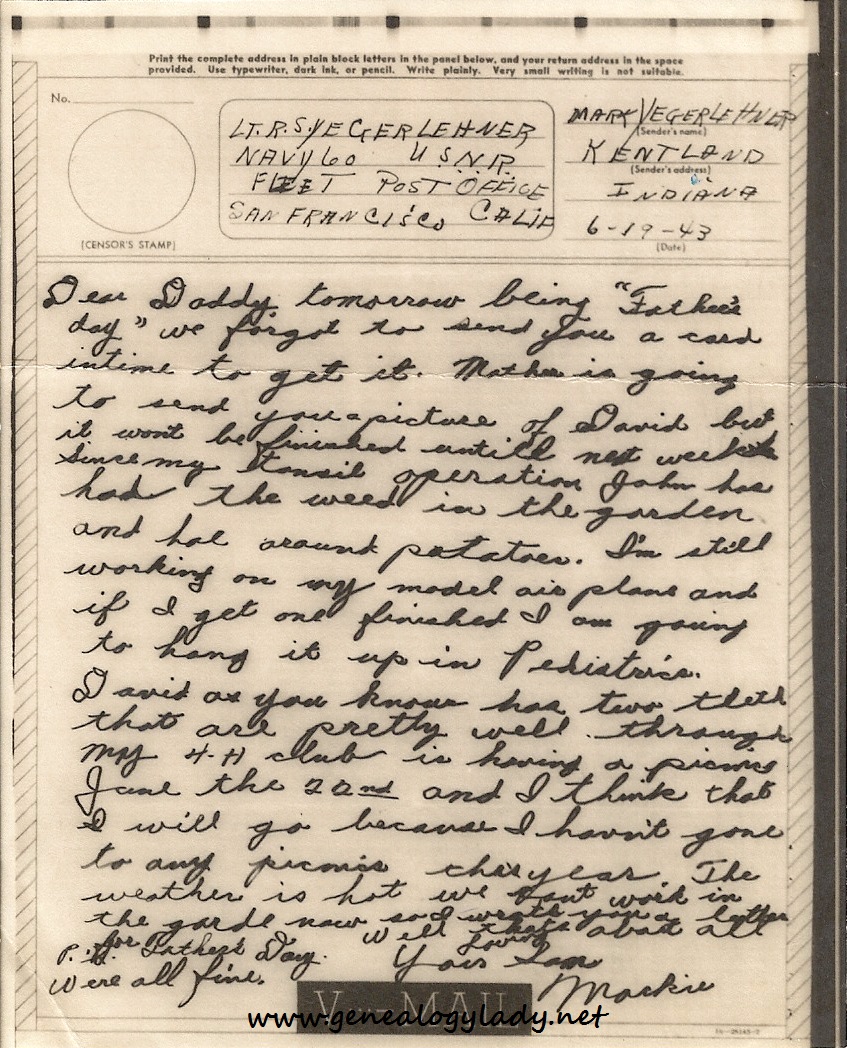 Print the complete address in plain block letters in the panel below, and your return address in the space
provided. Use typewriter, dark ink, or pencil. Write plainly. Very small writing is not suitable.
No.
(CENSOR'S STAMP)
LT. R.S. YEGERLEHNER
NAVY 60 U.S.N.R.
FLEET POST OFFICE
SAN FRANCISCO CALIF
MARK YEGERLEHNER
(Sender's name)
KENTLAND
(Sender's address)
INDIANA
6-19-43
(Date)
Dear Daddy, tomorrow being "Father's
day" we forgot to send you a card
intime to get it. Mother is going
to send you a picture of David but
it wont be finished untill next week
Since my tonsil operation John has
had the weed in the garden
and hoe around potatoes. I'm still
working on my model air plans and
if I get one finished I am going
to hang it up in Pediatrics.
David as you know has two teeth
that are pretty well through
my 4-H club is having a picnic
June the 22nd and I think that
I will go because I havn't gone
to any picnics this year. The
weather is hot we work in
the garde now so I wrote you a letter
for Father's Day. Well thats about all
Loving
Yours Son
Mackie
P.S.
Were all fine.
V - MAIL
www.genealogylady.net